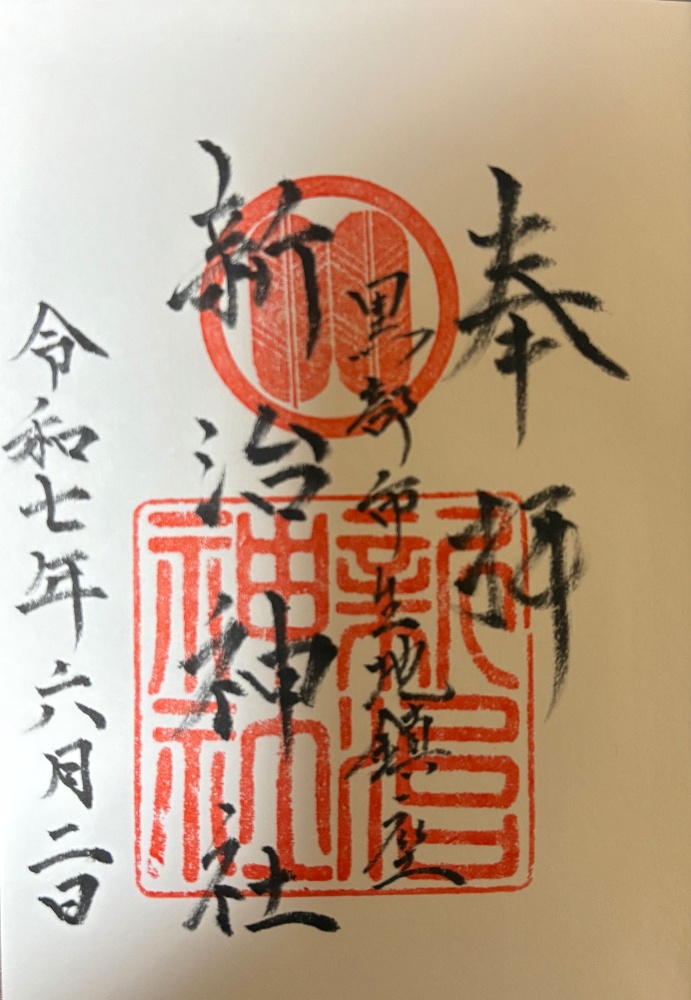 奉拝
黒部市生地鎮座
新治神社
新治神社
令和七年六月二日